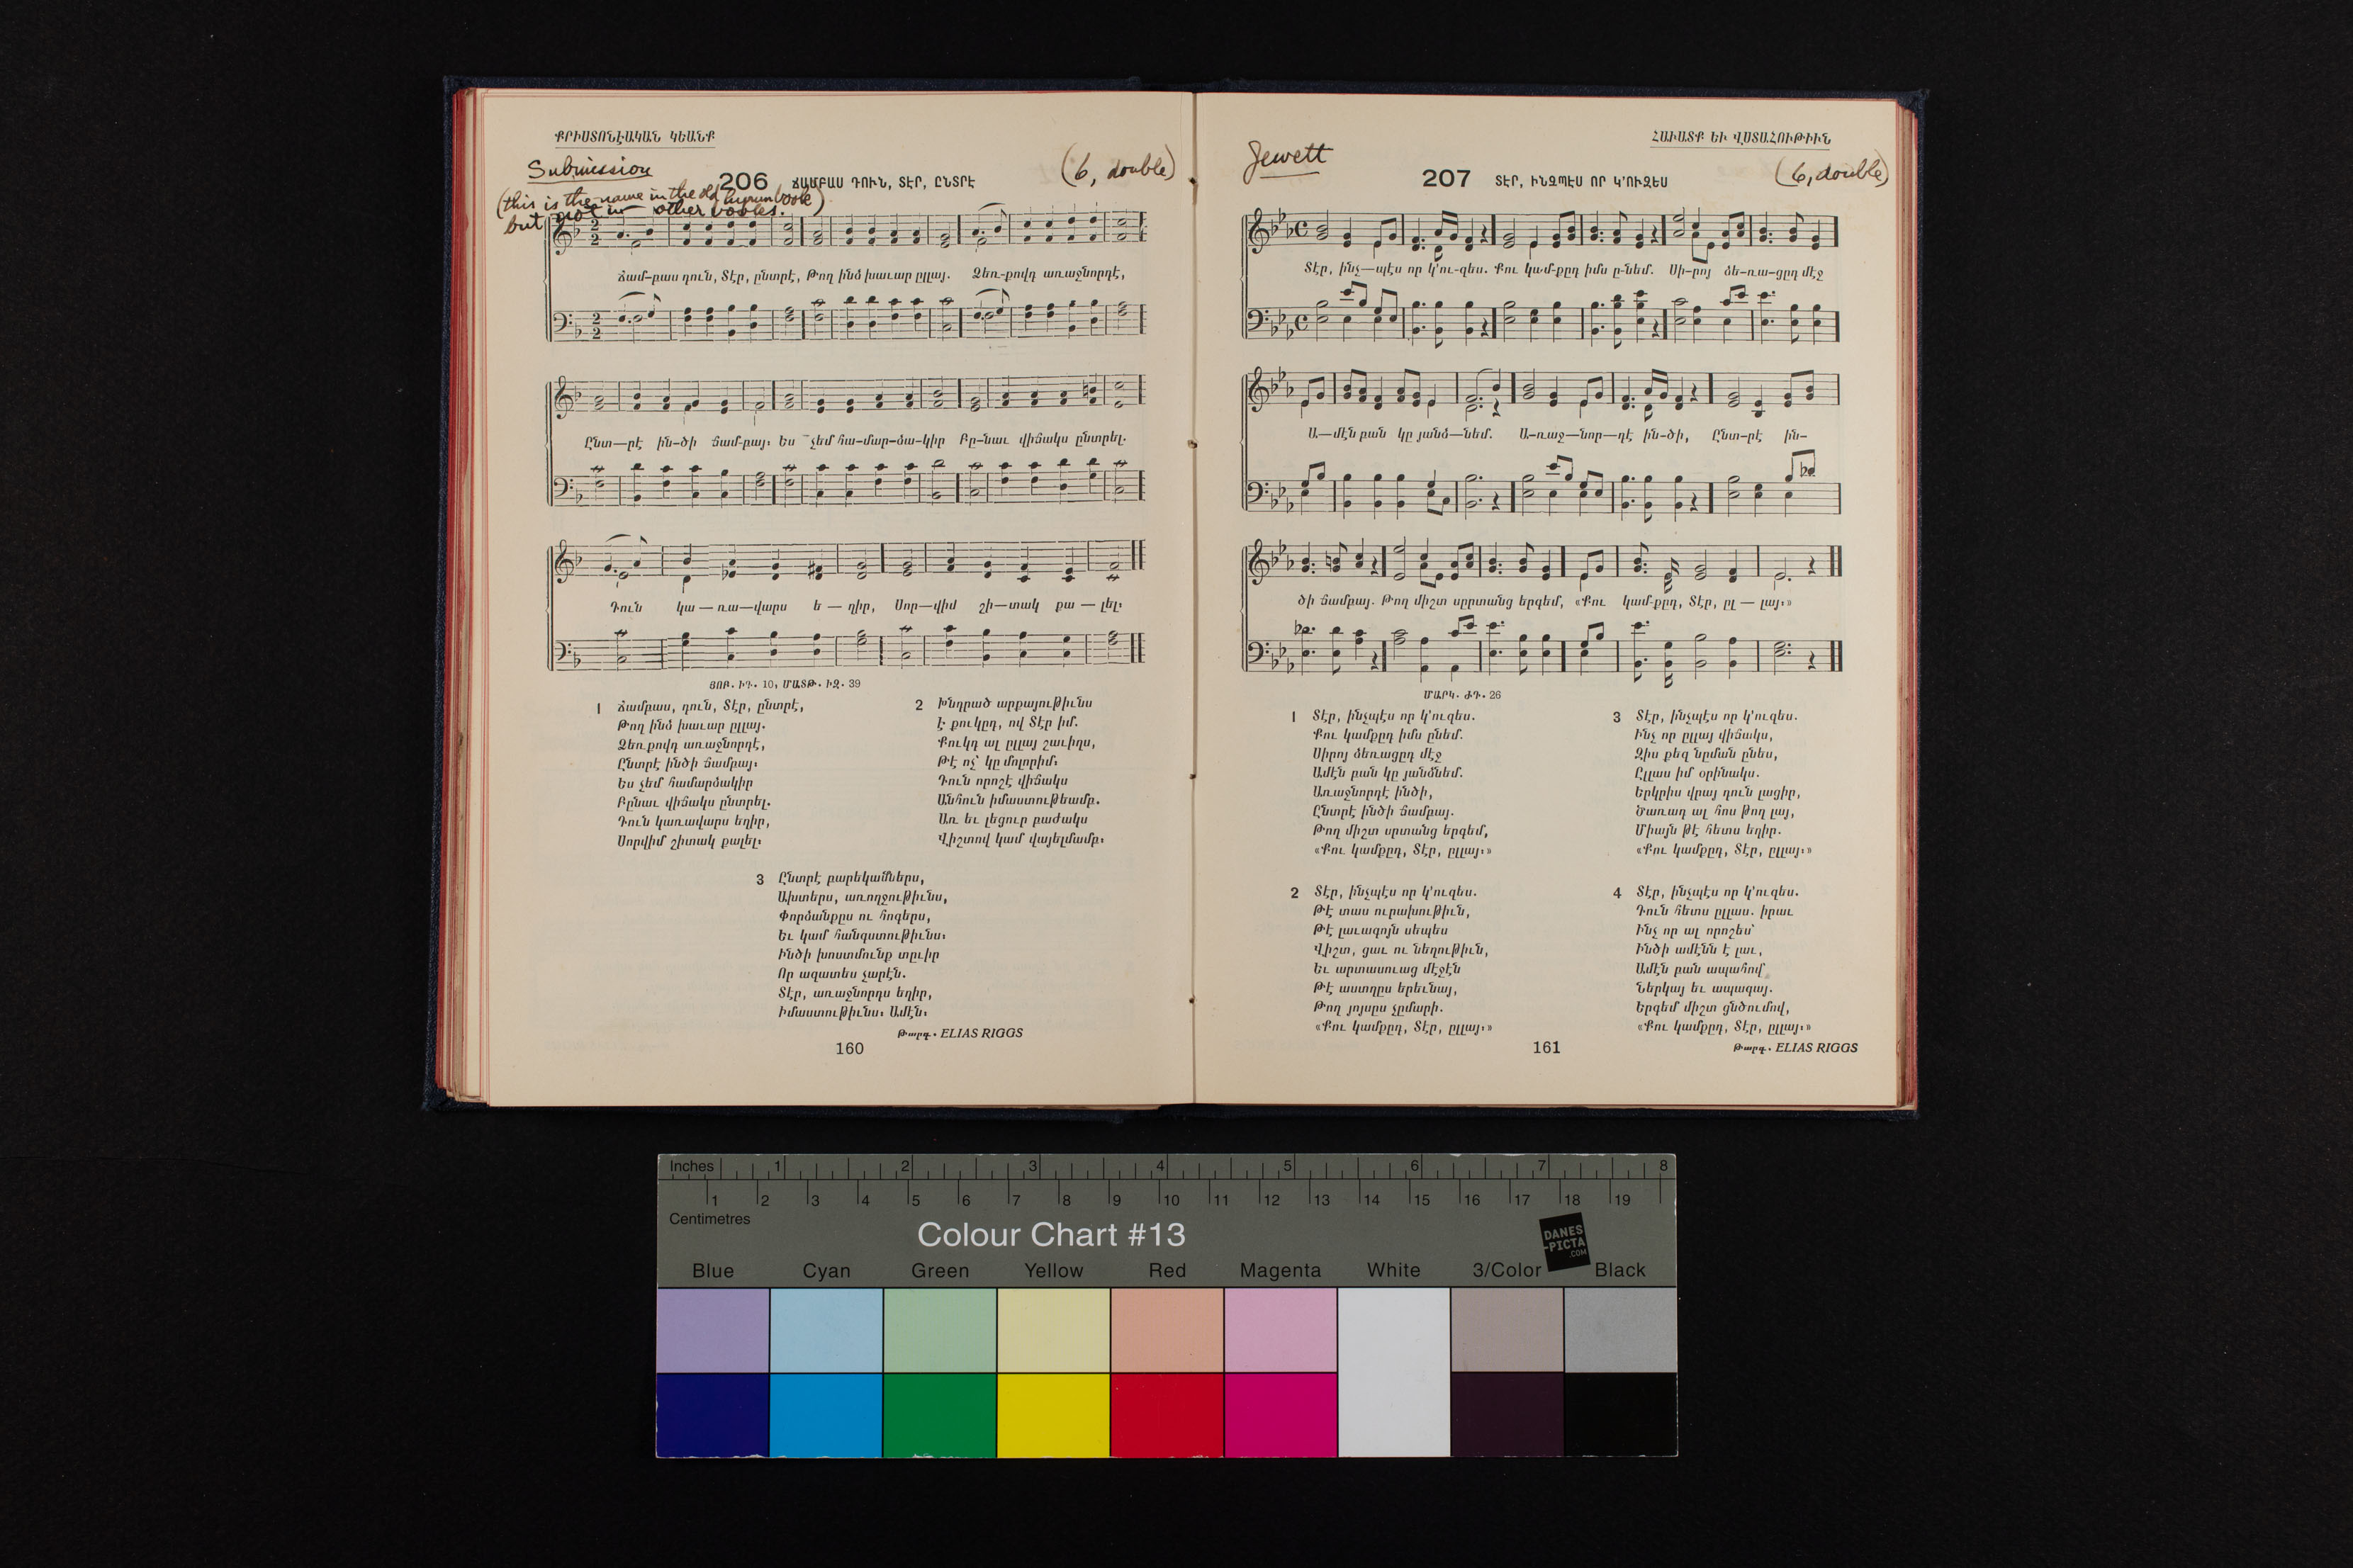 ՔՐԻՍՏՈՆԷԱԿԱՆ ԿԵԱՆՔ
Submission
(6, double)
206 ՃԱՄԲԱՍ ԴՈՒՆ, ՏԷՐ, ԸՆՏՐԷ
(this is the name in the old hymn book)
but not in other books.
Ճամ-բաս դուն, Տէր, ընտրէ, Թող ինձ խաւար ըլլայ. Ձեռ-քովդ առաջնորդէ,
Ընտ—րէ ին-ծի ճամ-բայ։ Ես չեմ հա-մար-ձա-կիր Բը-նաւ վիճակս ընտրել.
Դուն կա — ռա—վարս ե — ղիր, Սոր—վիմ շի—տակ քա — լել։
ՅՈԲ. ԻԳ. 10, ՄԱՏԹ. ԻԶ. 39
1 Ճամբաս, դուն, Տէր, ընտրէ,
Թող ինձ խաւար ըլլայ.
Ձեռքովդ առաջնորդէ,
Ընտրէ ինծի ճամբայ։
Ես չեմ համարձակիր
Բընաւ վիճակս ընտրել.
Դուն կառավարս եղիր,
Սորվիմ շիտակ քալել։
2 Խնդրած արքայութիւնս
Է քուկըդ, ով Տէր իմ.
Քուկդ ալ ըլլայ շաւիղս,
Թէ ոչ՝ կը մոլորիմ։
Դուն որոշէ վիճակս
Անհուն իմաստութեամբ.
Առ եւ լեցուր բաժակս
Վիշտով կամ վայելմամբ։
3 Ընտրէ բարեկամներս,
Ախտերս, առողջութիւնս,
Փորձանքըս ու հոգերս,
Եւ կամ հանգստութիւնս։
Ինծի խոստմունք տըւիր
Որ ազատես չարէն.
Տէր, առաջնորդս եղիր,
Իմաստութիւնս։ Ամէն։
Թարգ. ELIAS RIGGS
160
ՀԱՒԱՏՔ ԵՒ ՎՍՏԱՀՈՒԹԻՒՆ
Jewett
(6, double)
207 ՏԷՐ, ԻՆՉՊԷՍ ՈՐ Կ՚ՈՒԶԵՍ
Տէր, ինչ—պէս որ կ՚ու-զես. Քու կամ-քըդ իմս ը-նեմ. Սի-րոյ ձե-ռա-ցըդ մէջ
Ա—մէն բան կը յանձ—նեմ. Ա-ռաջ—նոր—դէ ին-ծի, Ընտ-րէ ին-
ծի ճամբայ. Թող միշտ սըրտանց երգեմ, «Քու կամ-քըդ, Տէր, ըլ — լայ։»
ՄԱՐԿ. ԺԴ. 26
1 Տէր, ինչպէս որ կ՚ուզես.
Քու կամքըդ իմս ընեմ.
Սիրոյ ձեռացըդ մէջ
Ամէն բան կը յանձնեմ.
Առաջնորդէ ինծի,
Ընտրէ ինծի ճամբայ.
Թող միշտ սրտանց երգեմ,
«Քու կամքըդ, Տէր, ըլլայ։»
2 Տէր, ինչպէս որ կ՚ուզես.
Թէ տաս ուրախութիւն,
Թէ լաւագոյն սեպես
Վիշտ, ցաւ ու նեղութիւն,
Եւ արտասուաց մէջէն
Թէ աստղըս երեւնայ,
Թող յոյսըս չըմարի.
«Քու կամքըդ, Տէր, ըլլայ։»
3 Տէր, ինչպէս որ կ՚ուզես.
Ինչ որ ըլլայ վիճակս,
Զիս քեզ նըման ընես,
Ըլլաս իմ օրինակս.
Երկրիս վրայ դուն լացիր,
Ծառադ ալ հոս թող լայ,
Միայն թէ հետս եղիր.
«Քու կամքըդ, Տէր, ըլլայ։»
4 Տէր, ինչպէս որ կ՚ուզես.
Դուն հետս ըլլաս. իրաւ
Ինչ որ ալ որոշես՝
Ինծի ամէնն է լաւ,
Ամէն բան ապահով՝
Ներկայ եւ ապագայ.
Երգեմ միշտ ցնծումով,
«Քու կամքըդ, Տէր, ըլլայ։»
Թարգ. ELIAS RIGGS
161
Inches 1 2 3 4 5 6 7 8
1 2 3 4 5 6 7 8 9 10 11 12 13 14 15 16 17 18 19
Centimetres
Colour Chart #13
DANES
-PICTA
.COM
Blue Cyan Green Yellow Red Magenta White 3/Color Black